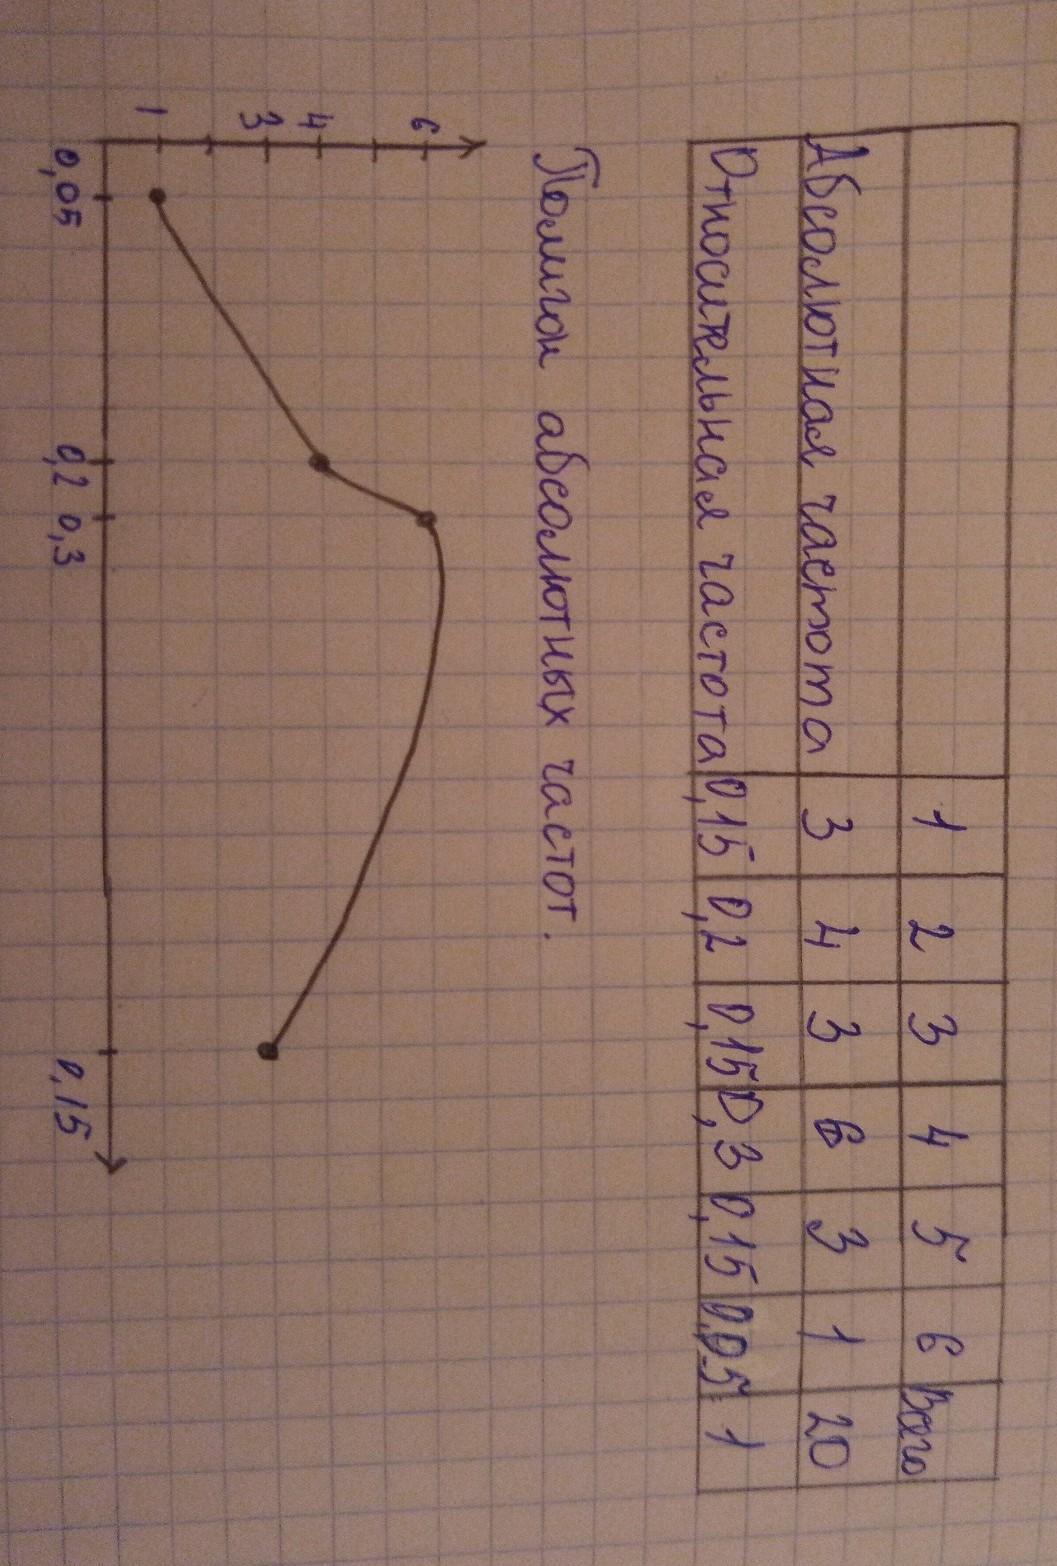 1 2 3 4 5 6 Всего
Абсолютная частота 3 4 3 6 3 1 20
Относительная частота 0,15 0,2 0,15 0,3 0,15 0,05 1
Полигон абсолютных частот.
6
4
3
1
0,05 0,2 0,3 0,15